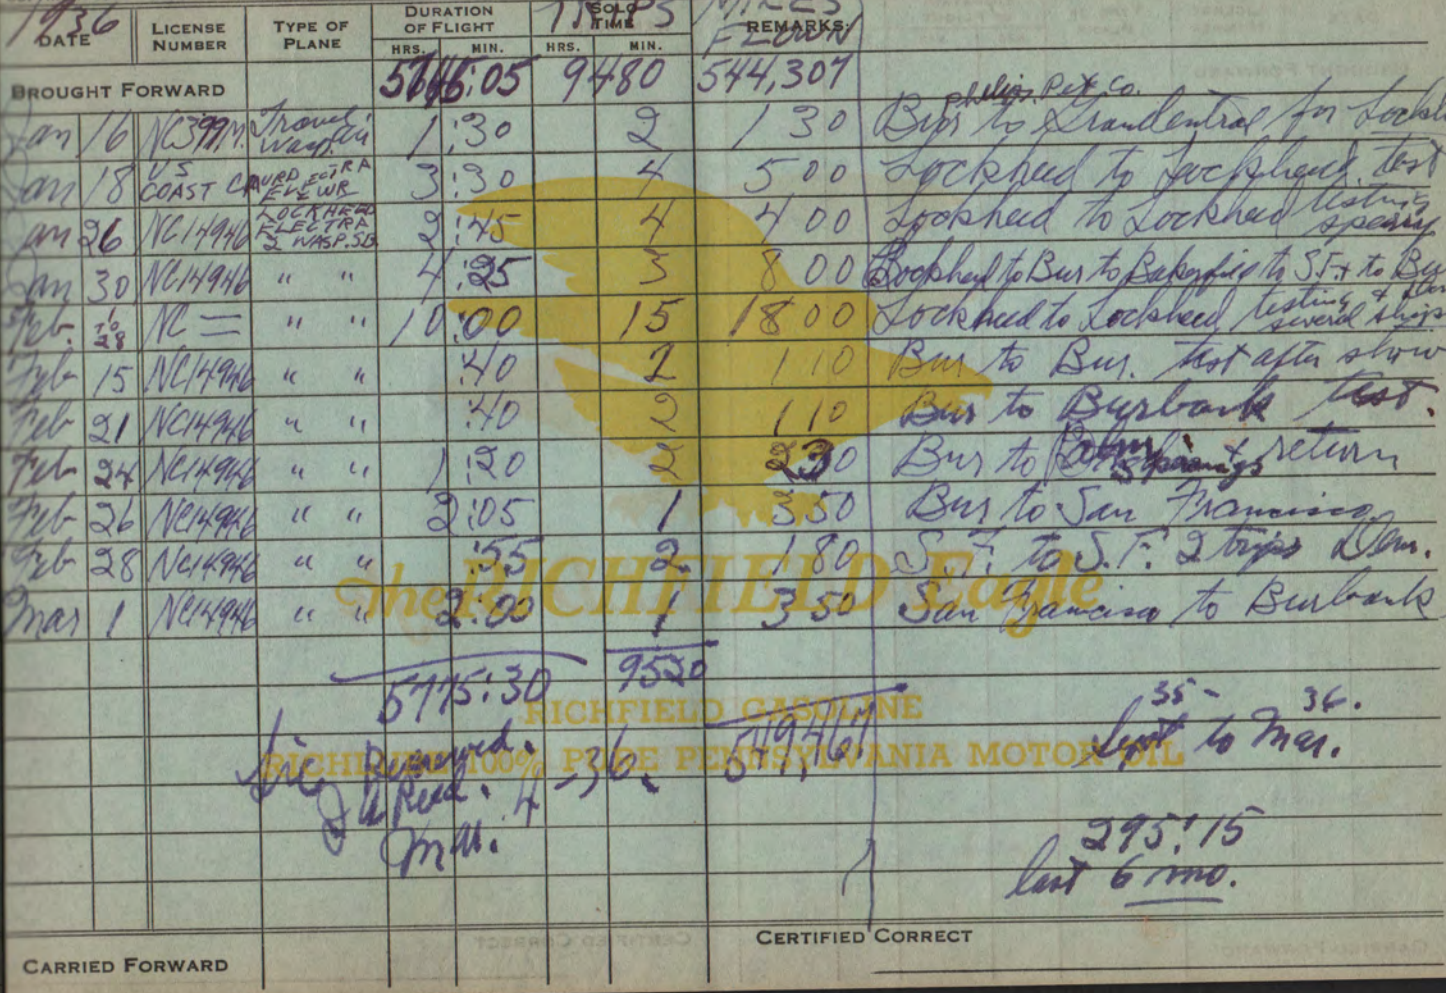 1936
DATE LICENSE NUMBER TYPE OF PLANE DURATION OF FLIGHT SOLO TIME TRIPS REMARKS: MILES FLOWN
HRS. MIN. HRS. MIN.
BROUGHT FORWARD 5746:05 9480 544,307
Philips Pet. Co.
Jan 16 NC399M. Travel Wasp 1:30 2 130 Bur to Grandcentral for Lockh
Jan 18 US COAST GUARD ELECTRA 3:30 4 500 Lockheed to Lockheed test
Jan 26 NC14946 LOCKHEED ELECTRA 2 WASP.SB 2:45 4 400 Lockheed to Lockheed testing sperry
Jan 30 NC14946 " " 4:25 3 800 Lockheed to Bur to Bakersfield to S.F. to Bur
Feb. 1 to 28 NC = " " 10:00 15 1800 Lockheed to Lockheed testing + several ships
Feb 15 NC14946 " " :40 2 110 Bur to Bur. test after show
Feb 21 NC14946 " " :40 2 110 Bur to Burbank test.
Feb 24 NC14946 " " 1:20 2 230 Bur to Palm Springs & return
Feb 26 NC14946 " " 2:05 1 350 Bur to San Francisco
Feb 28 NC14946 " " :55 2 180 S.F. to S.F. 2 trips Dem.
Mar 1 NC14946 " " 2:00 1 350 San Francisco to Burbank
The RICHFIELD Eagle
5775:30 9520
35- 36.
RICHFIELD GASOLINE
549,467 Sept to Mar.
RICHFIELD 100% PURE PENNSYLVANIA MOTOR OIL
Lic. Renewed. -36.
4
Mar.
295:15
last 6 mo.
CERTIFIED CORRECT
CARRIED FORWARD